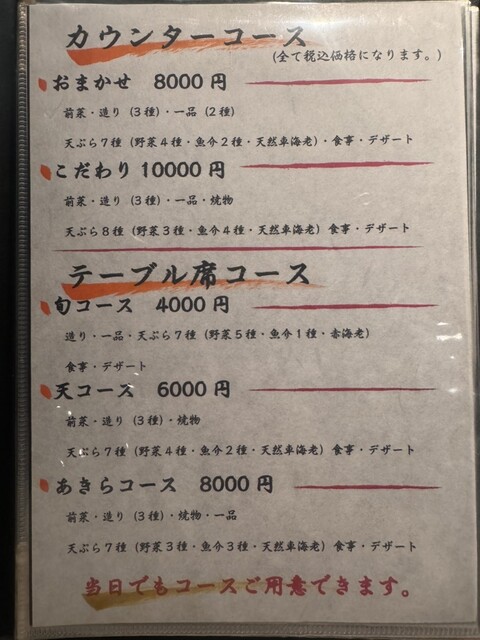 カウンターコース
(全て税込価格になります。)
おまかせ 8000円
前菜・造り(3種)・一品(2種)
天ぷら7種(野菜4種・魚介2種・天然車海老)・食事・デザート
こだわり 10000円
前菜・造り(3種)・一品・焼物
天ぷら8種(野菜3種・魚介4種・天然車海老)食事・デザート
テーブル席コース
旬コース 4000円
造り・一品・天ぷら7種(野菜5種・魚介1種・赤海老)
食事・デザート
天コース 6000円
前菜・造り(3種)・焼物
天ぷら7種(野菜4種・魚介2種・天然車海老)食事・デザート
あきらコース 8000円
前菜・造り(3種)・焼物・一品
天ぷら7種(野菜3種・魚介3種・天然車海老)食事・デザート
当日でもコースご用意できます。